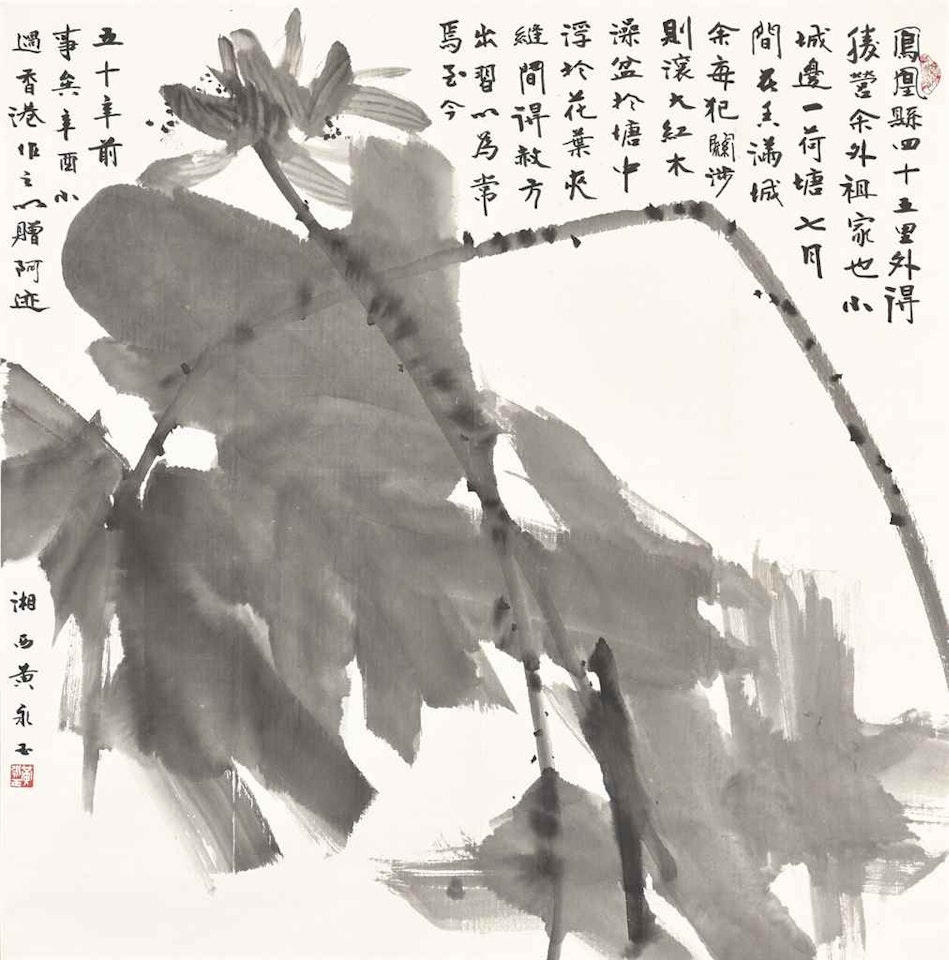 鳳凰縣四十五里外得
勝營余外祖家也小
城邊一荷塘七月
間花香滿城
余每犯關涉
則滾大紅木
澡盆於塘中
浮於花葉夾
縫間得赦方
出習以為常
焉至今
五十年前
事矣辛酉小
過香港作之以贈阿迹
湘西黃永玉